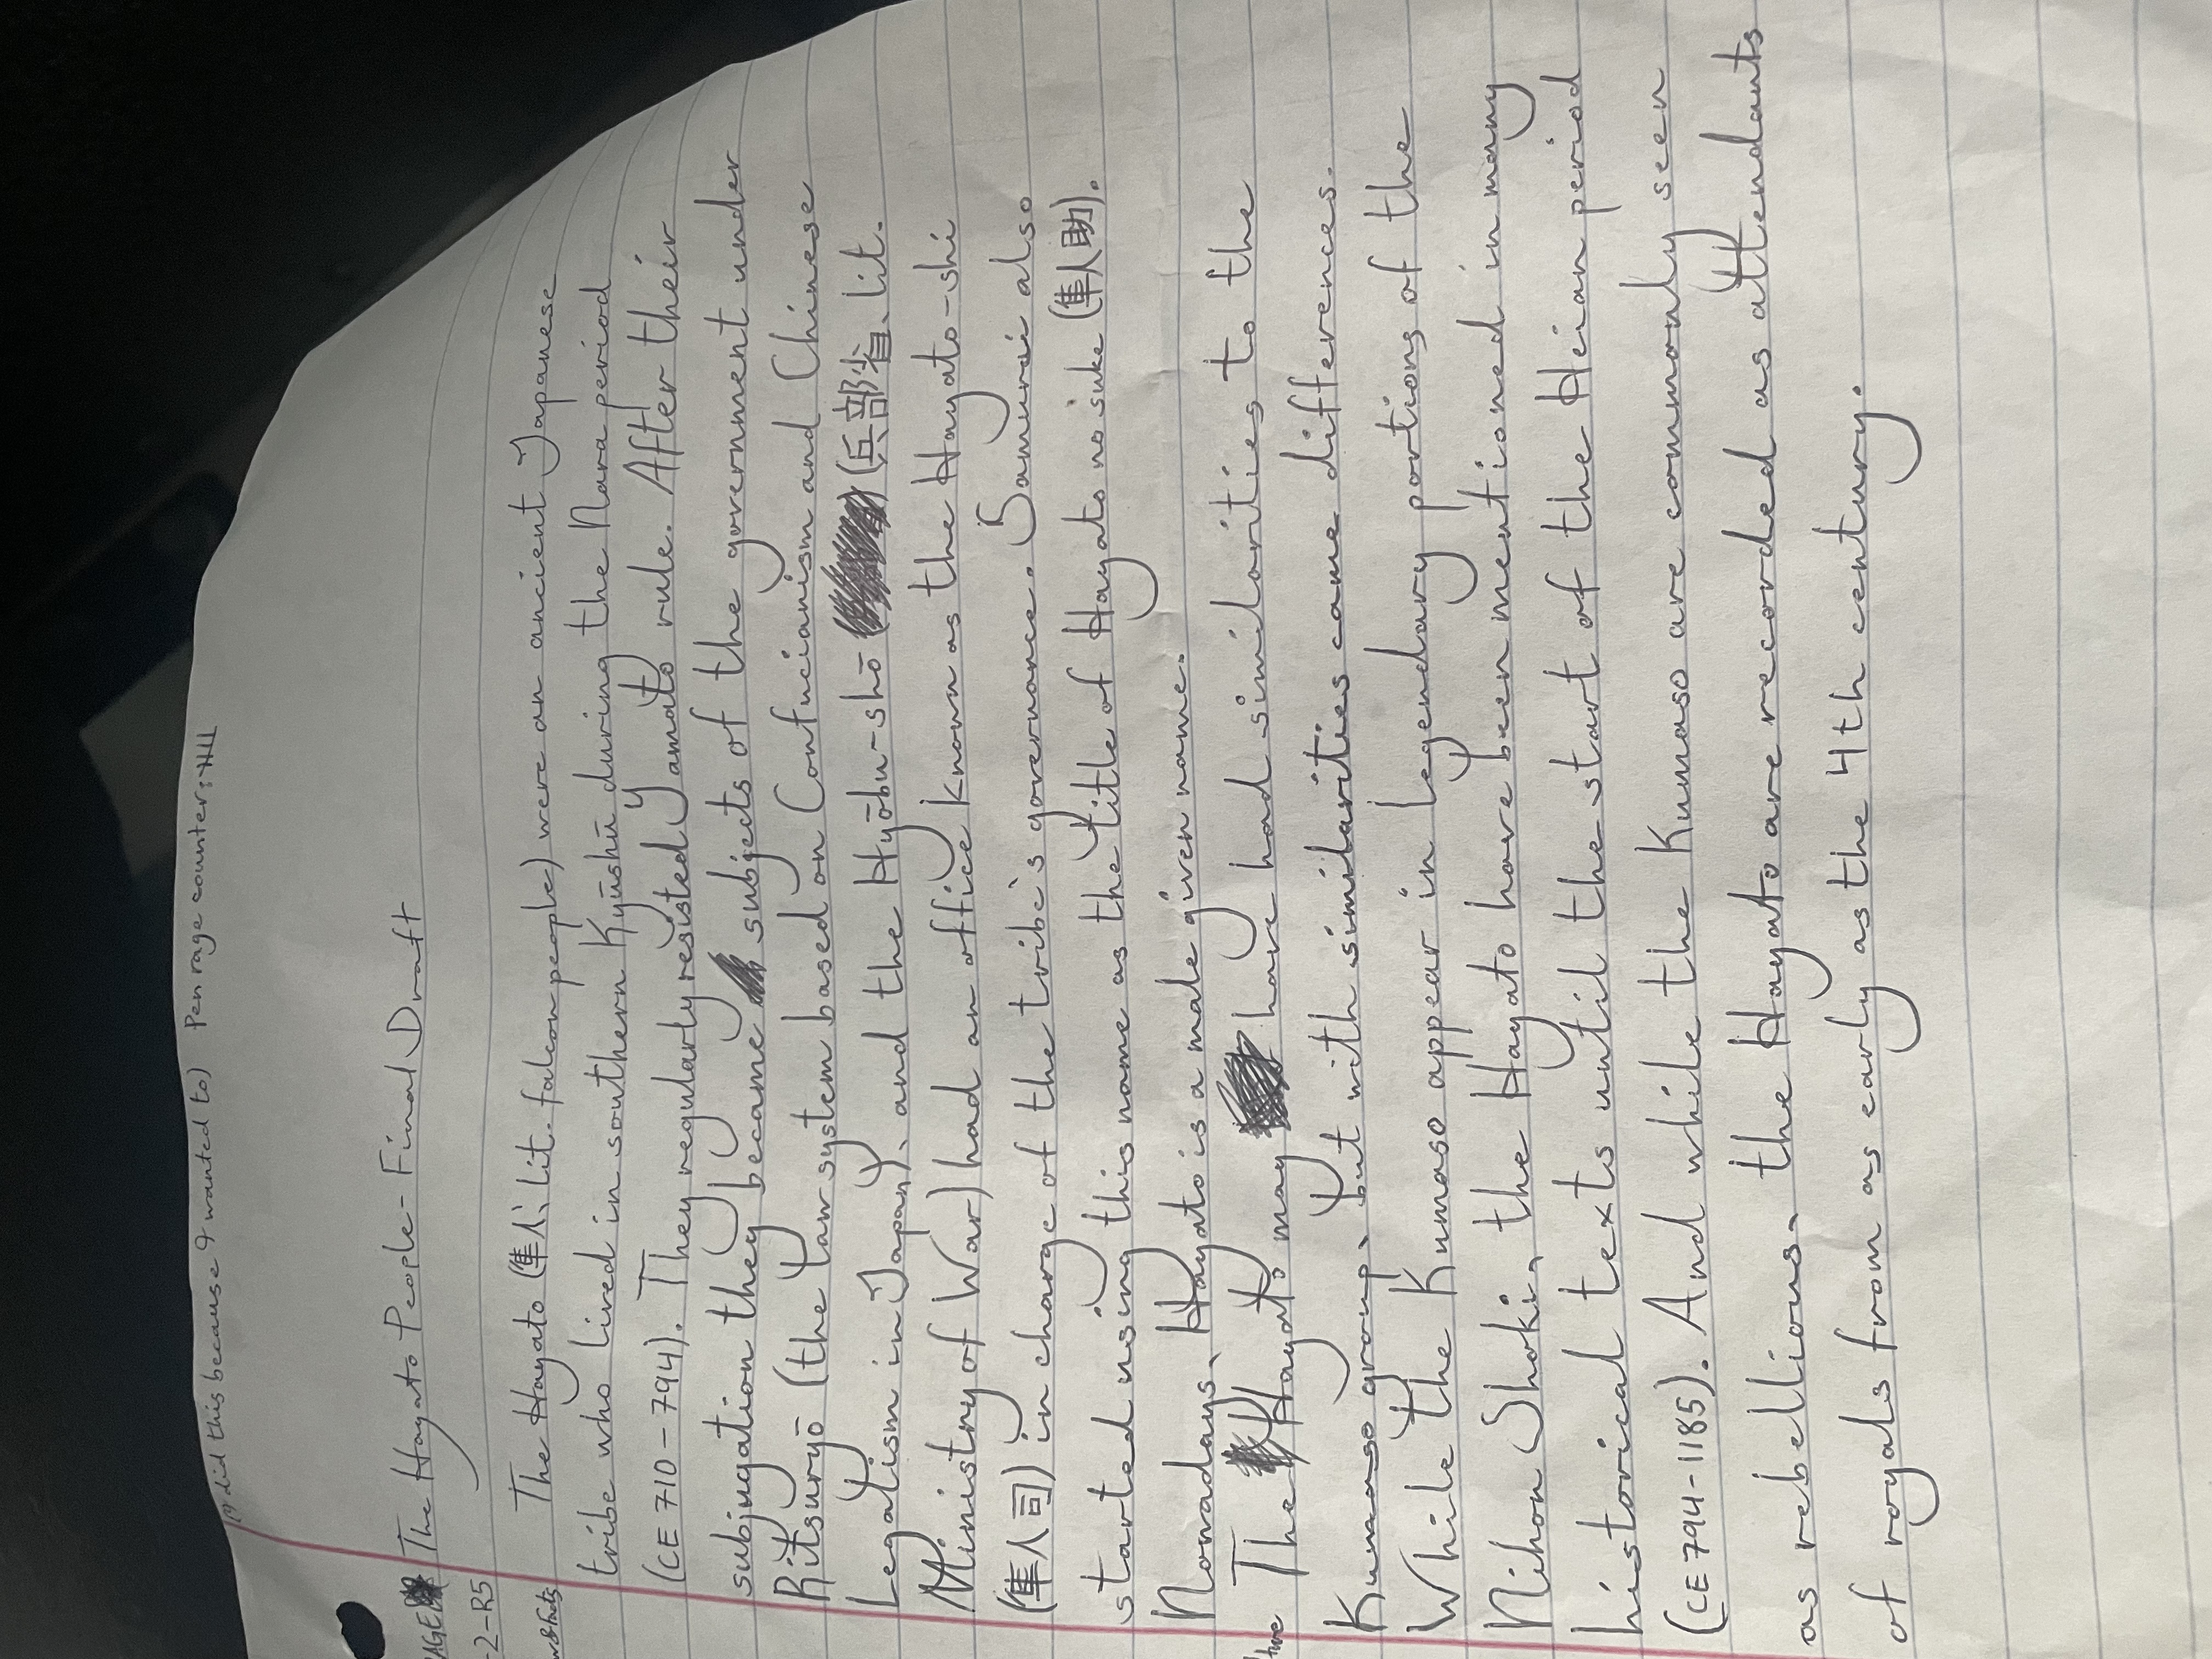 (I did this because I wanted to) Pen rage counter:
The Hayato People - Final Draft
2-R5
The Hayato (隼人、lit. falcon people) were an ancient Japanese
tribe who lived in southern Kyūshū during the Nara period
(CE 710-794). They regularly resisted Yamato rule. After their
subjugation they became subjects of the government under
Ritsuryō (the law system based on Confucianism and Chinese
Legalism in Japan), and the Hyōbu-shō (兵部省、lit.
Ministry of War) had an office known as the Hayato-shi
(隼人司) in charge of the tribe's governance. Samurai also
started using this name as the title of Hayato no suke (隼人助).
Nowadays, Hayato is a male given name.
The Hayato may have had similarities to the
Kumaso group, but with similarities came differences.
While the Kumaso appear in legendary portions of the
Nihon Shoki, the Hayato have been mentioned in many
historical texts until the start of the Heian period
(CE 794-1185). And while the Kumaso are commonly seen
as rebellious, the Hayato are recorded as attendants
of royals from as early as the 4th century.